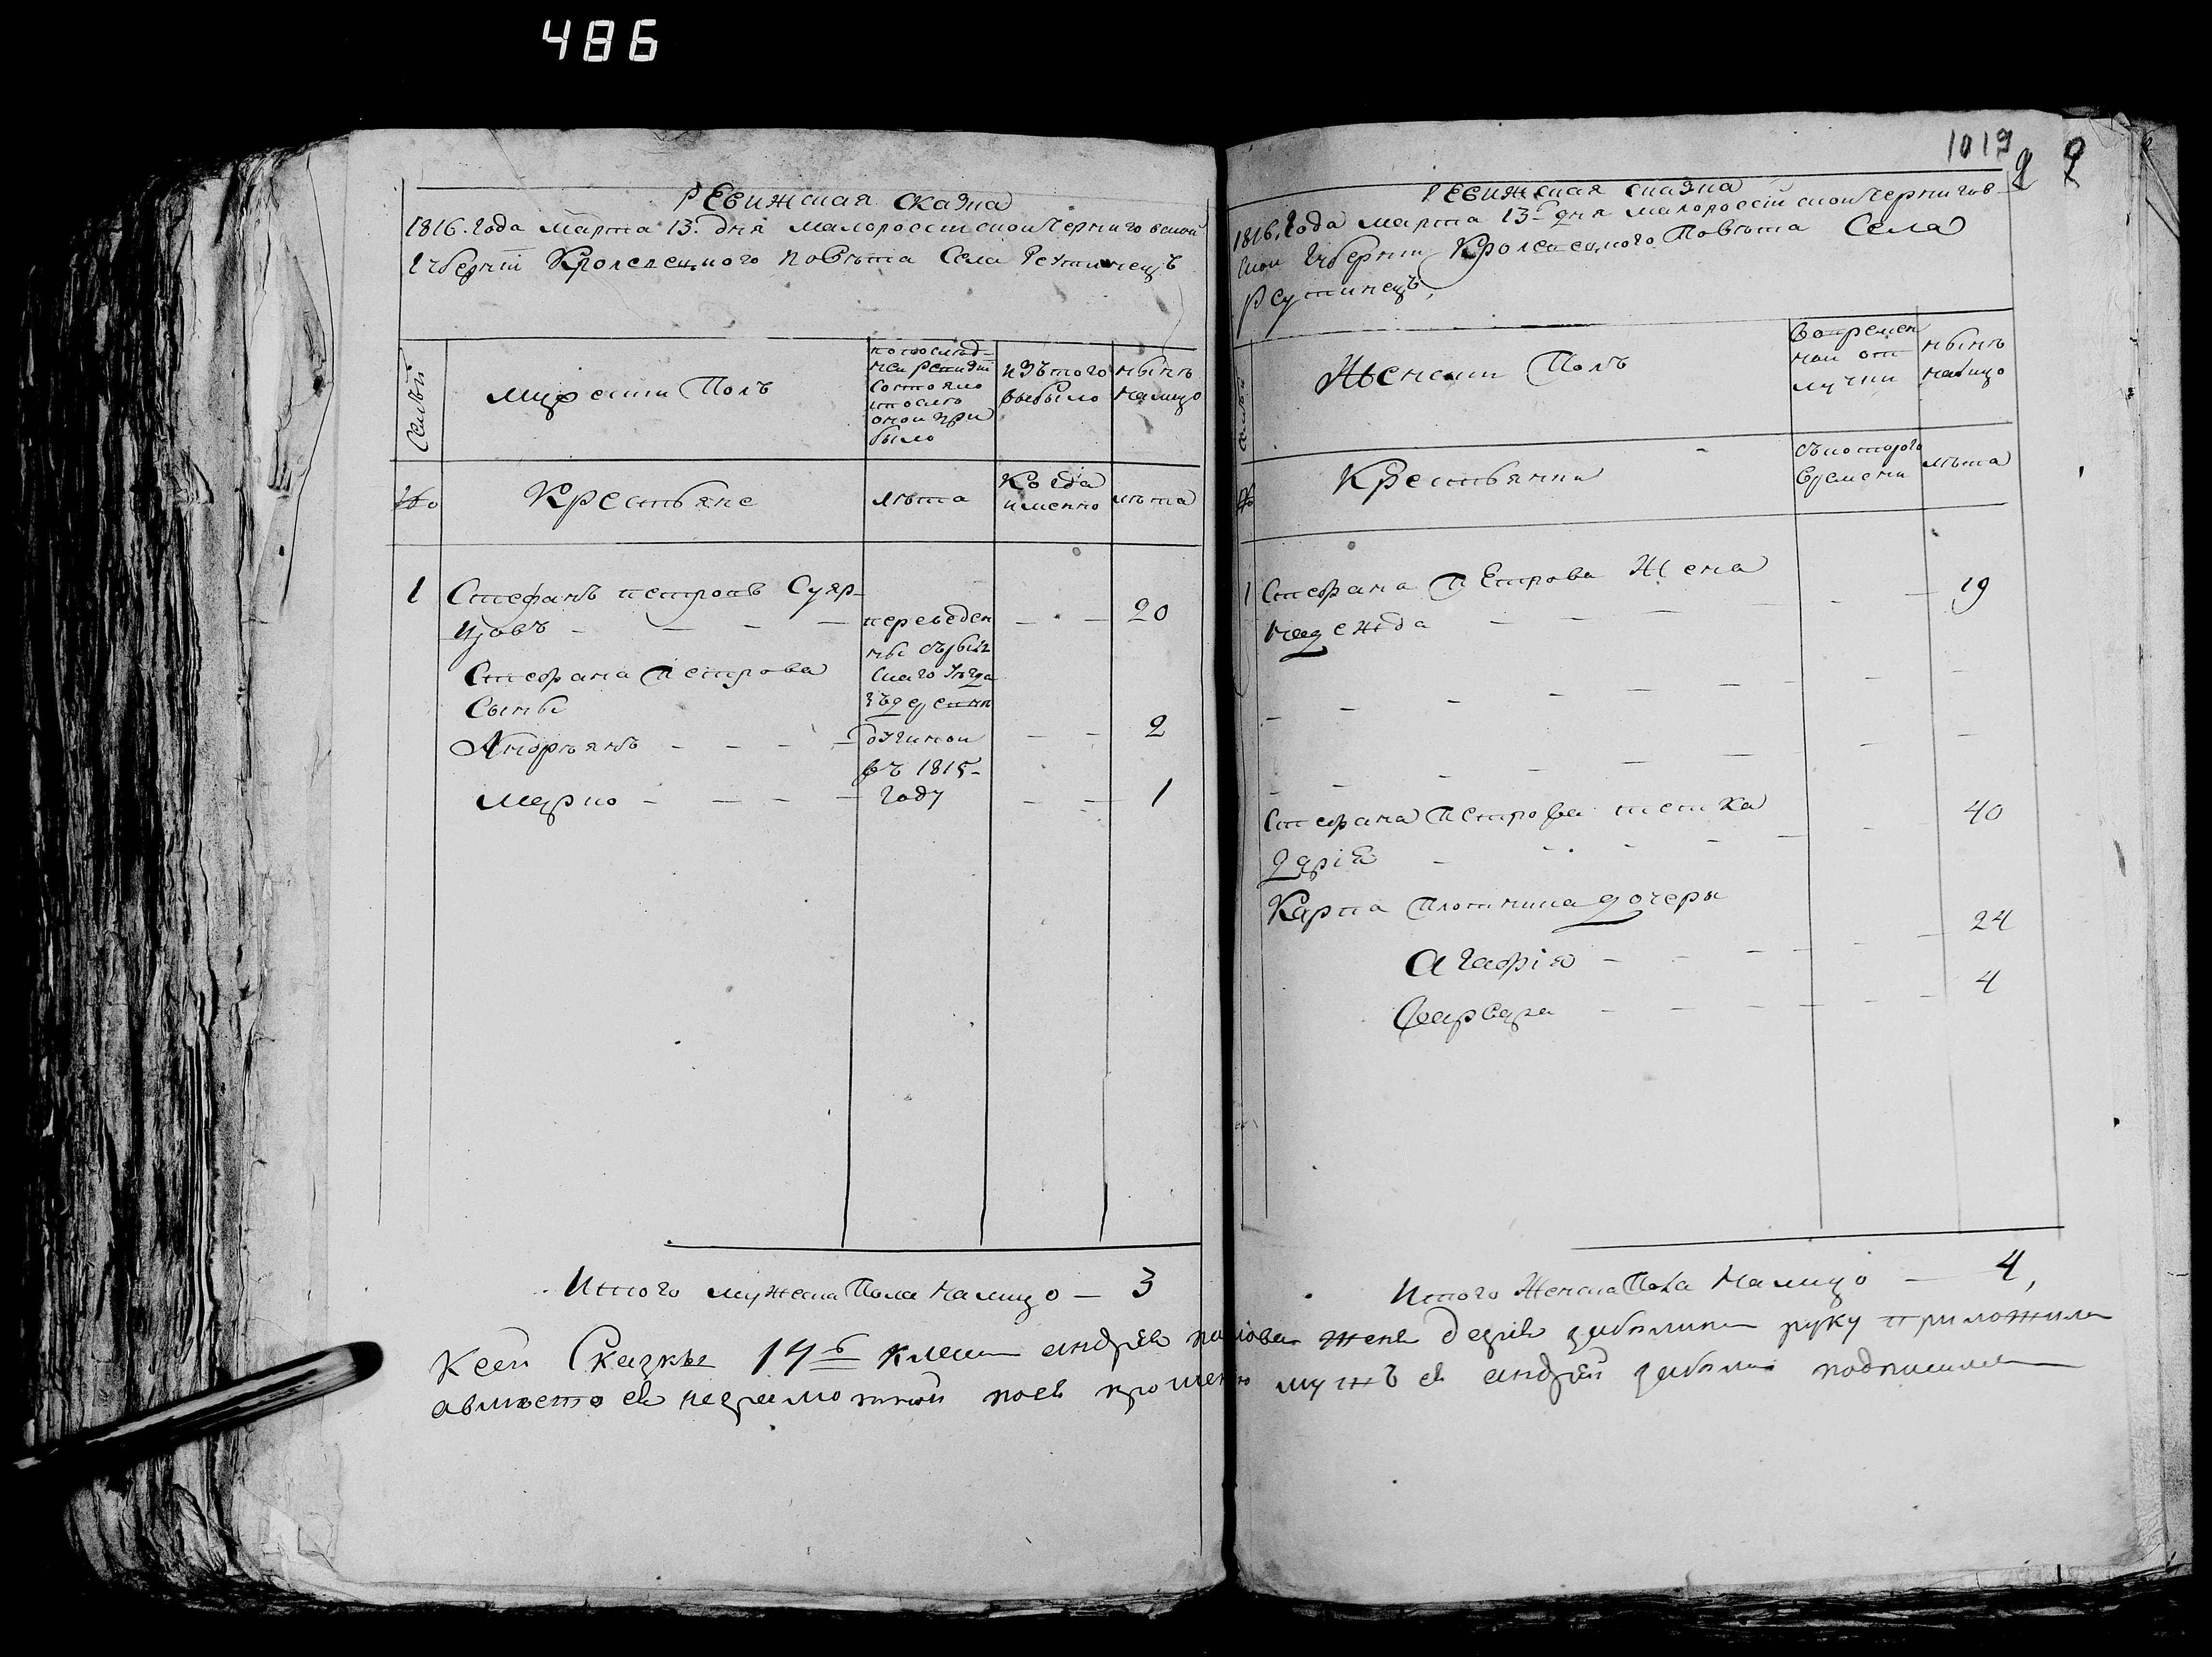 486
РЕвижская сказка
1816. года марта 13. дня малороссийской Черниговской
Губернїи Кролевецкого повѣта Села Реутинецъ
Семьи
Мужескїи Полъ
по послѣд-
неи ревизїи
состояло
и послѣ
онои при
было
изъ того
выбыло
нынѣ
налицо
№
Крестьяне
лѣта
Когда
именно
лѣта
1 Стефанъ петровъ
переведен 20
Стефана Петрова
Сыны
Андрѣянъ 2
въ 1815-
Марко году 1
Итого мужеска Пола налицо — 3
1019
РЕвижская сказка
1816. Года марта 13 дня малороссїйскои Чернигов-
скои Губернїи Кролевецкого Повѣта Села
Реутинецъ,
Семьи
Женскїи Полъ
во времен
нои от
лучки
нынѣ
налицо
№
Крестьянки
съ которого
времени
лѣта
1 Стефана пЕтрова Жена
надежда 19
Стефана Петрова тетка
дарїя 40
Карпа дочеры
Агафїя 24
Варвара 4
Итого Женска Пола Налицо — 4,
Ксей Сказкѣ 14 класа андрея жена руку приложила
авместо ея неграмотной поея прошению мужъ ея андрей подписался